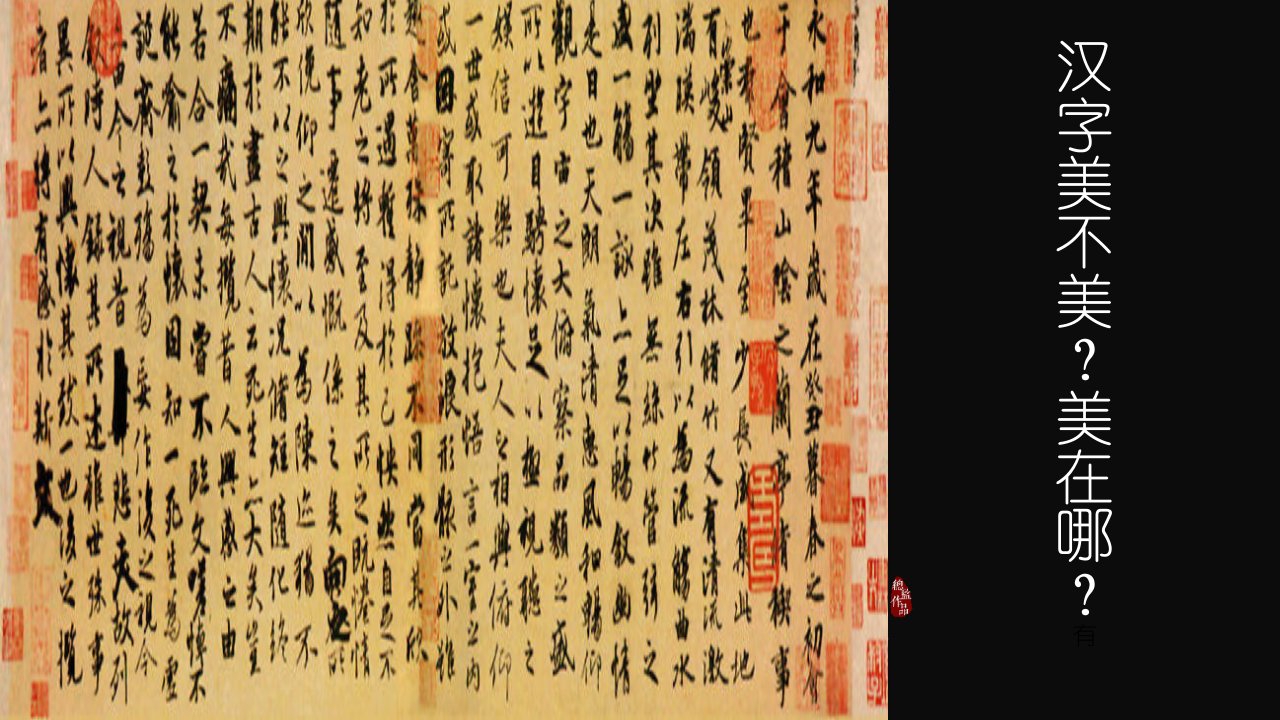 汉字美不美？美在哪？
有
永和九年歲在癸丑暮春之初會
于會稽山陰之蘭亭脩禊事
也群賢畢至少長咸集此地
崇山
有峻領茂林脩竹又有清流激
湍暎帶左右引以為流觴曲水
列坐其次雖無絲竹管弦之
盛一觴一詠亦足以暢敘幽情
是日也天朗氣清惠風和暢仰
觀宇宙之大俯察品類之盛
所以遊目騁懷足以極視聽之
娛信可樂也夫人之相與俯仰
一世或取諸懷抱悟言一室之內
或因寄所託放浪形骸之外雖
趣舍萬殊靜躁不同當其欣
於所遇暫得於己快然自足不
知老之將至及其所之既惓情
隨事遷感慨係之矣向之所
欣俛仰之閒以為陳迹猶不
能不以之興懷況脩短隨化終
期於盡古人云死生亦大矣豈
不痛哉每攬昔人興感之由
若合一契未嘗不臨文嗟悼不
能喻之於懷固知一死生為虛
誕齊彭殤為妄作後之視今
亦由今之視昔悲夫故列
敘時人錄其所述雖世殊事
異所以興懷其致一也後之攬
者亦將有感於斯文